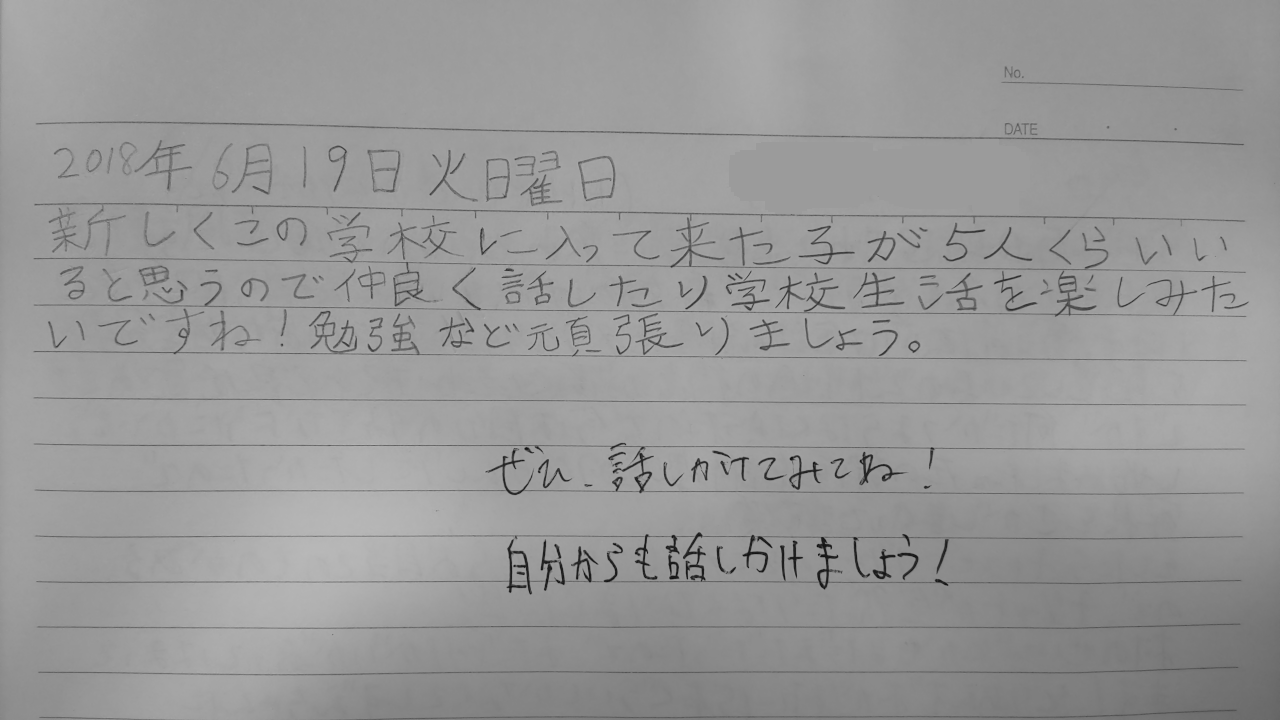 No.
DATE
2018年6月19日火曜日
新しくこの学校に入って来た子が5人くらいい
ると思うので仲良く話したり学校生活を楽しみた
いですね!勉強など元頁張りましょう。
ぜひ、話しかけてみてね!
自分からも話しかけましょう!